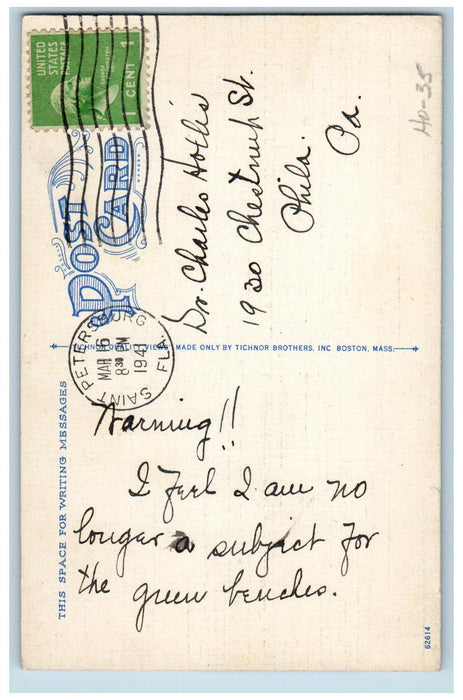 UNITED
STATES
POSTAGE
1 CENT 1
POST
CARD
SAINT PETERSBURG
FLA.
MAR 16
8 30 PM
1941
Dr. Charles Hollis
1930 Chestnut St.
Phila.
Pa.
Ho-35
TICHNOR QUALITY VIEWS MADE ONLY BY TICHNOR BROTHERS. INC BOSTON, MASS.
THIS SPACE FOR WRITING MESSAGES
Warning!!
I feel I am no
longer a subject for
the green benches.
62614